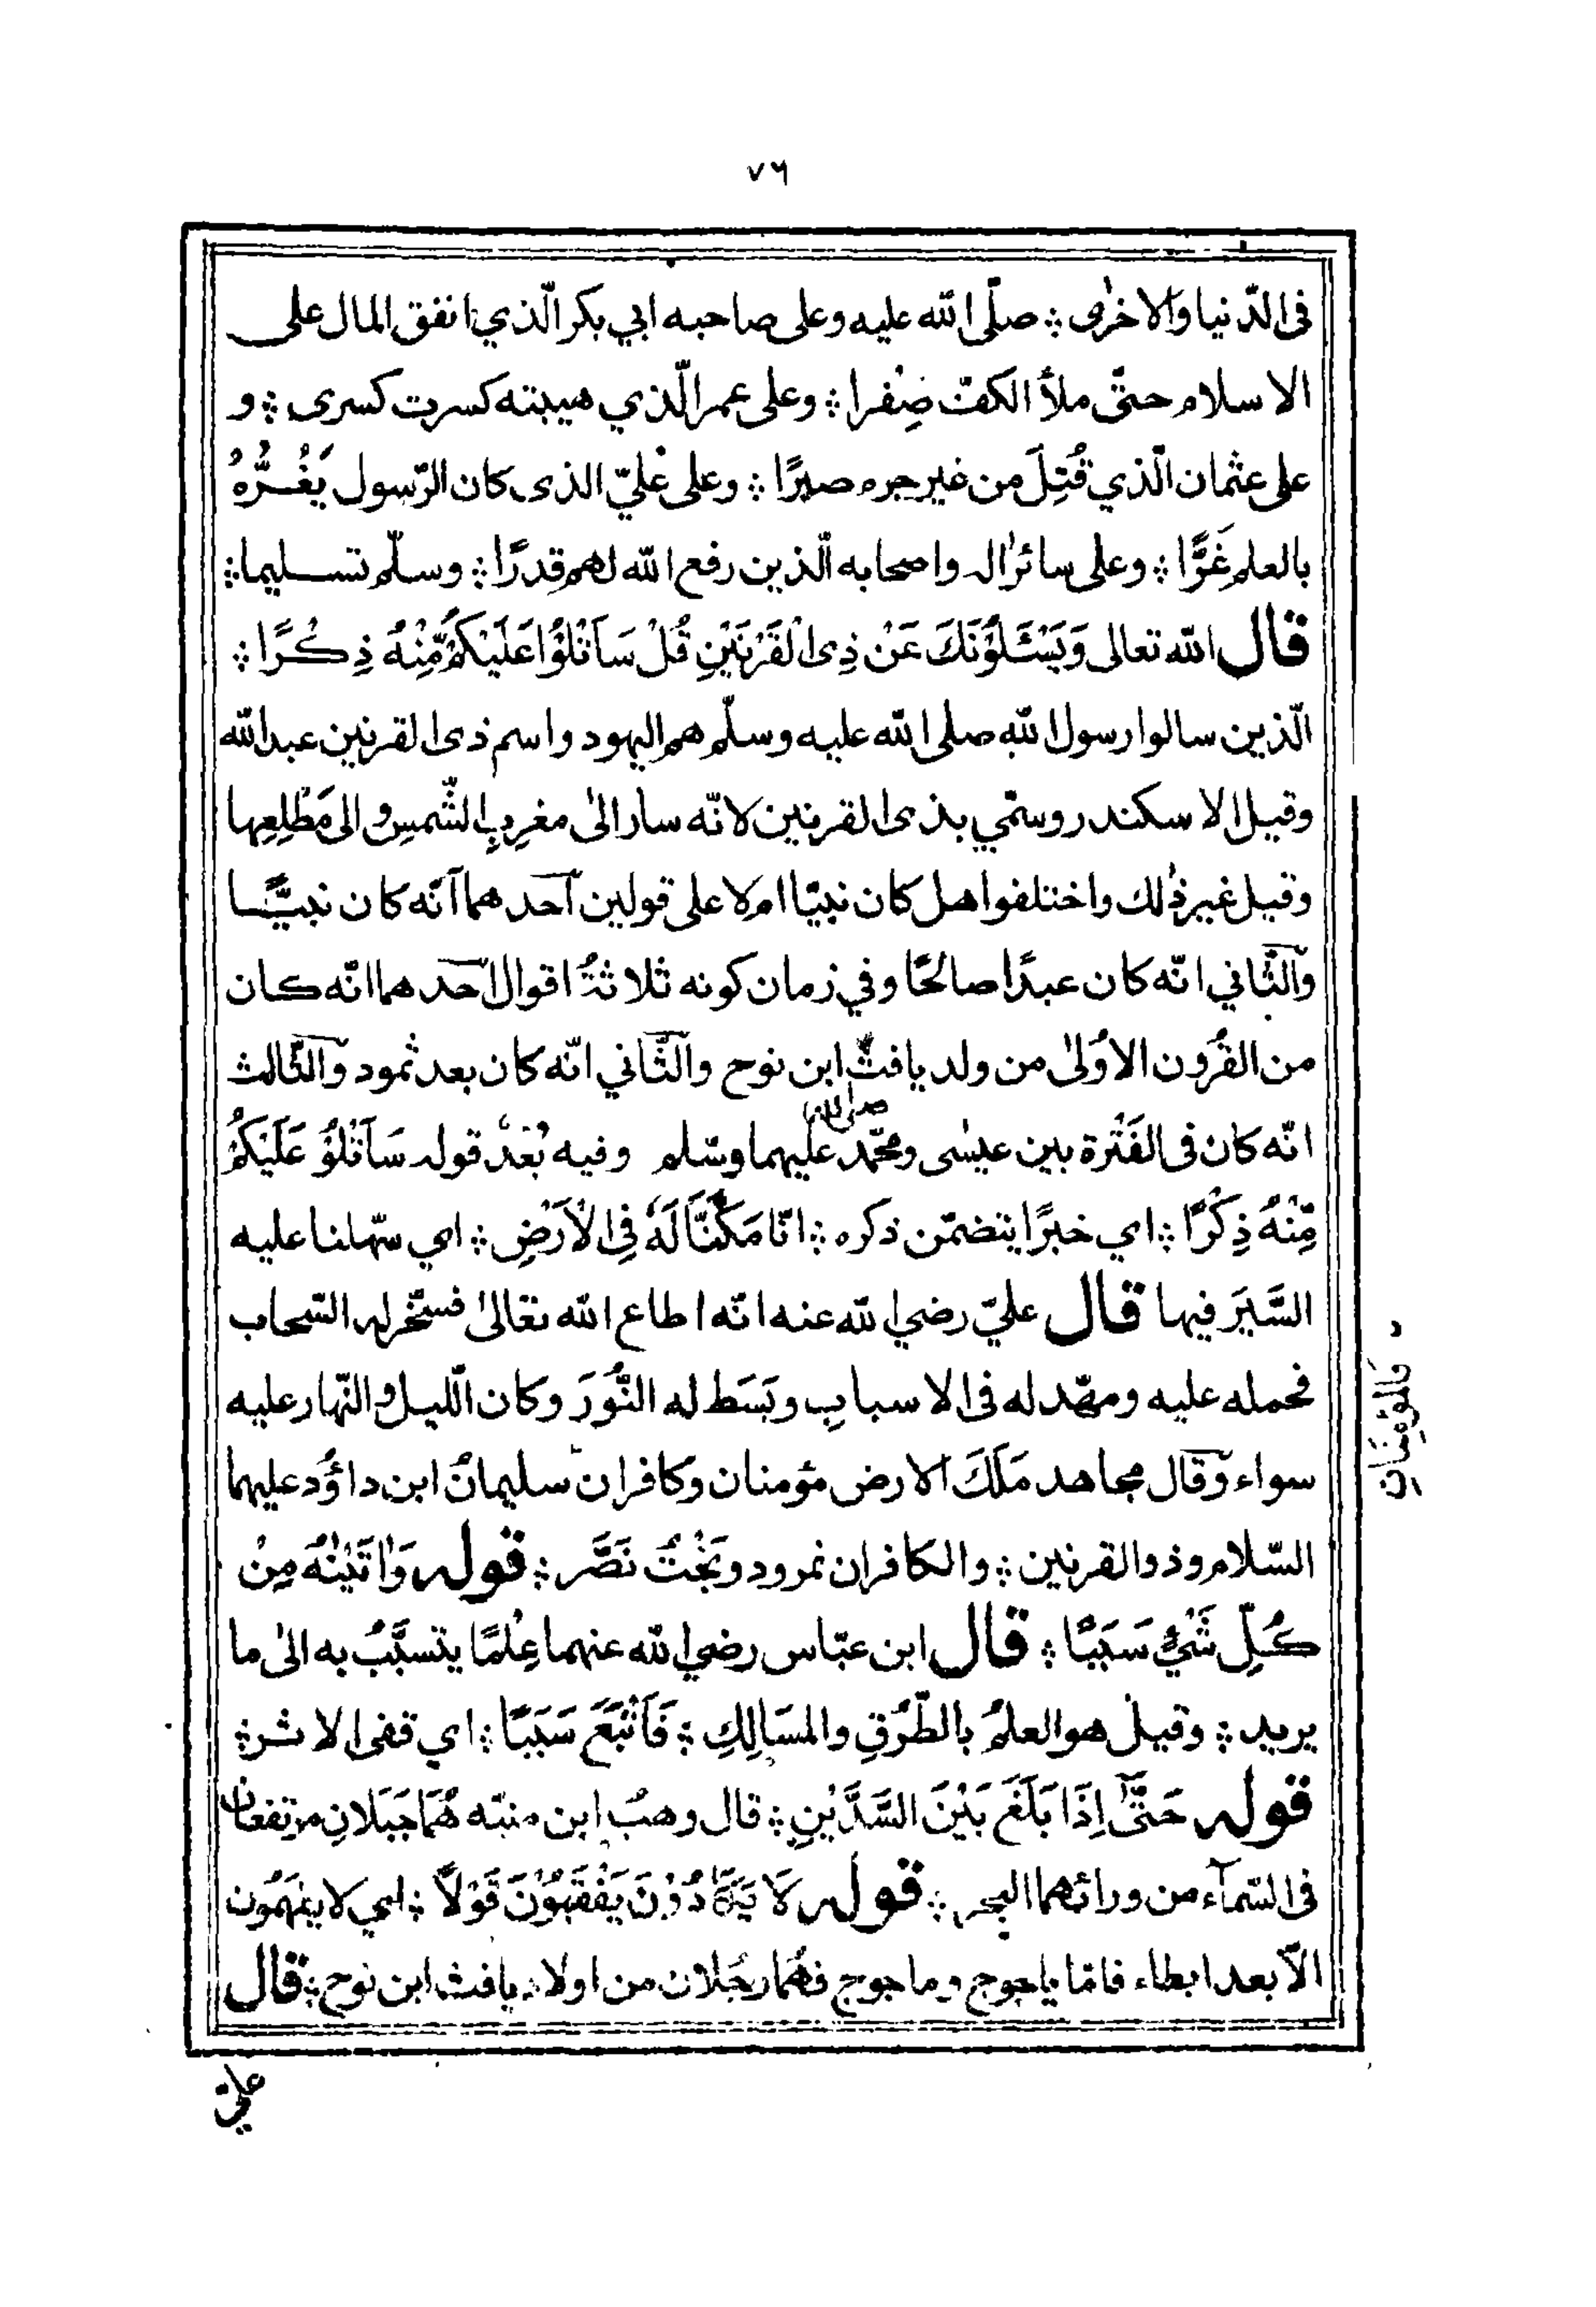 ٧٦
فى الدّنيا والاخرٰى ⁘ صلّى الله عليه وعلى صاحبه ابي بكر الّذي انفق المال على
الاسلام حتّى ملأ الكفّ صِفرا ⁘ وعلى عمر الّذي هيبته كسرت كسرى ⁘ و
على عثمان الّذي قُتِلَ من غير جرم صبرًا ⁘ وعلى عليّ الذى كان الرّسول يَغُرُّهُ
بالعلم غَرًّا ⁘ وعلى سائر اٰله واصحابه الّذين رفع الله لهم قدرًا ⁘ وسلّم تسليما ⁘
قال الله تعالى وَيَسْـَٔلُوْنَكَ عَنْ ذِى الْقَرْنَيْنِ قُلْ سَاَتْلُوْا عَلَيْكُمْ مِّنْهُ ذِكْرًا ⁘
الّذين سالوا رسول اللهِ صلى الله عليه وسلّم هم اليهود واسم ذى القرنين عبد الله
وقيل الاسكندر وسمّي بذى القرنين لانّه سار الىٰ مغرِبِ الشّمسِ والى مَطْلِعِها
وقيل غير ذٰلك واختلفوا هل كان نبيّا ام لا على قولين احدهما انّه كان نبيًّا
والثّاني انّه كان عبدًا صالحًا وفي زمان كونه ثلاثةُ اقوال احدهما انّه كان
من القُرون الاُولىٰ من ولد يافث ابن نوح والثّاني انّه كان بعد ثمود والثّالث
انّه كان فى الفَتْرة بين عيسٰى ومحمّد صلى الله عليهما وسّلم وفيه بُعْدٌ قوله سَاَتْلُوْ عَلَيْكُمْ
مِّنْهُ ذِكْرًا ⁘ اي خبرًا يتضمّن ذكره ⁘ انّا مَكَّنَّا لَهٗ فِى الْاَرْضِ ⁘ اي سهّلنا عليه
السَّيَر فيها قال عليّ رضي الله عنه انّه اطاع الله تعالىٰ فسخّر له السّحاب
فحمله عليه ومهّد له فى الاسبابِ وبَسَط له النُّوْرَ وكان اللّيل والنّهار عليه
سواء وقال مجاهد مَلَكَ الارض مؤمنان وكافران سليمانُ ابن داوٗد عليهما
السّلام وذو القرنين ⁘ والكافران نمرود وبُخْتُ نَصَّر ⁘ قوله وَاٰتَيْنٰهُ مِنْ
كُلِّ شَيْءٍ سَبَبًا ⁘ قال ابن عبّاس رضي الله عنهما عِلْمًا يتسبَّبُ به الىٰ ما
يريد ⁘ وقيل هو العلمُ بالطُّرُقِ والمسَالِكِ ⁘ فَاَتْبَعَ سَبَبًا ⁘ اي قفى الاثر ⁘
قوله حَتّٰى اِذَا بَلَغَ بَيْنَ السَّدَّيْنِ ⁘ قال وهبُ ابن منبّه هُمَا جَبَلانِ مرتفعان
فى السّمآء من ورائهما البحر ⁘ قوله لَا يَكَادُوْنَ يَفْقَهُوْنَ قَوْلًا ⁘ اي لا يفهَمُون
الّا بعد ابطاء فامّا ياجوج وماجوج فهُمَا رجُلان من اولاد يافث ابن نوح ⁘ قال
عليّ
فالمؤمنان